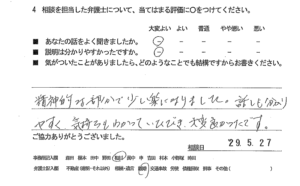 4 相談を担当した弁護士について、当てはまる評価に○をつけてください。
大変よい よい 普通 やや悪い 悪い
■ あなたの話をよく聞きましたか。
■ 説明は分かりやすかったですか。
■ 気がついたことがありましたら、どのようなことでも結構ですからお書きください。
精神的な部分で少し楽になりました。話しも分かり
やすく、気持ちもわかっていただき、大変良かったです。
ご協力ありがとうございました。
相談日 29.5.27
事務局記入欄
弁護士記入欄